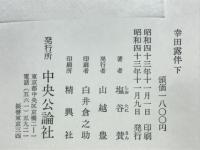 幸田露伴 下
頒価一八〇〇円
昭和四十三年十一月一日 印刷
昭和四十三年十一月九日 発行
著者 塩谷賛
発行者 山越豊
印刷者 白井倉之助
印刷所 精興社
発行所 中央公論社
東京都中央区京橋二ー一
電話(五六一)五九二一
振替東京三四